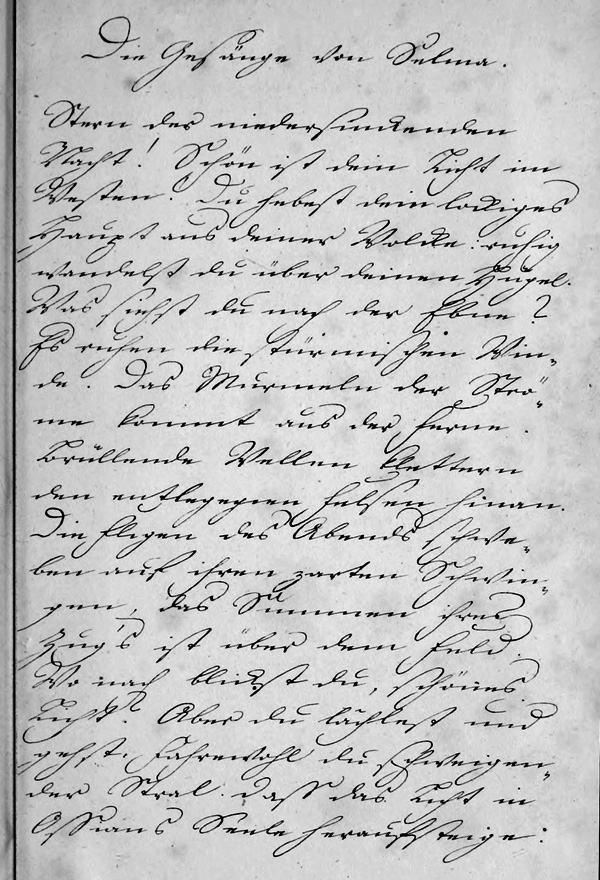 Die Gesänge von Selma.
Stern der niedersinkenden
Nacht! Schön ist dein Licht im
Westen! Du hebst dein lockiges
Haupt aus deiner Wolcke: ruhig
wandelst du über deinen Hügel.
Was siehst du nach der Ebne?
Es ruhen die stürmischen Win-
de. Das Murmeln der Strö-
me kommt aus der Ferne.
Brüllende Wellen klettern
den entlegegnen Felsen hinan.
Die Fligen des Abends schwe-
ben auf ihren zarten Schwin-
gen, das Summen ihres
Zug's ist über dem Feld.
Wo nach blickst du, schönes
Licht? Aber du lächlest und
gehst. Fahrewohl du schweigen-
der Stral. dass das Licht in
Ossians Seele heraufsteige: